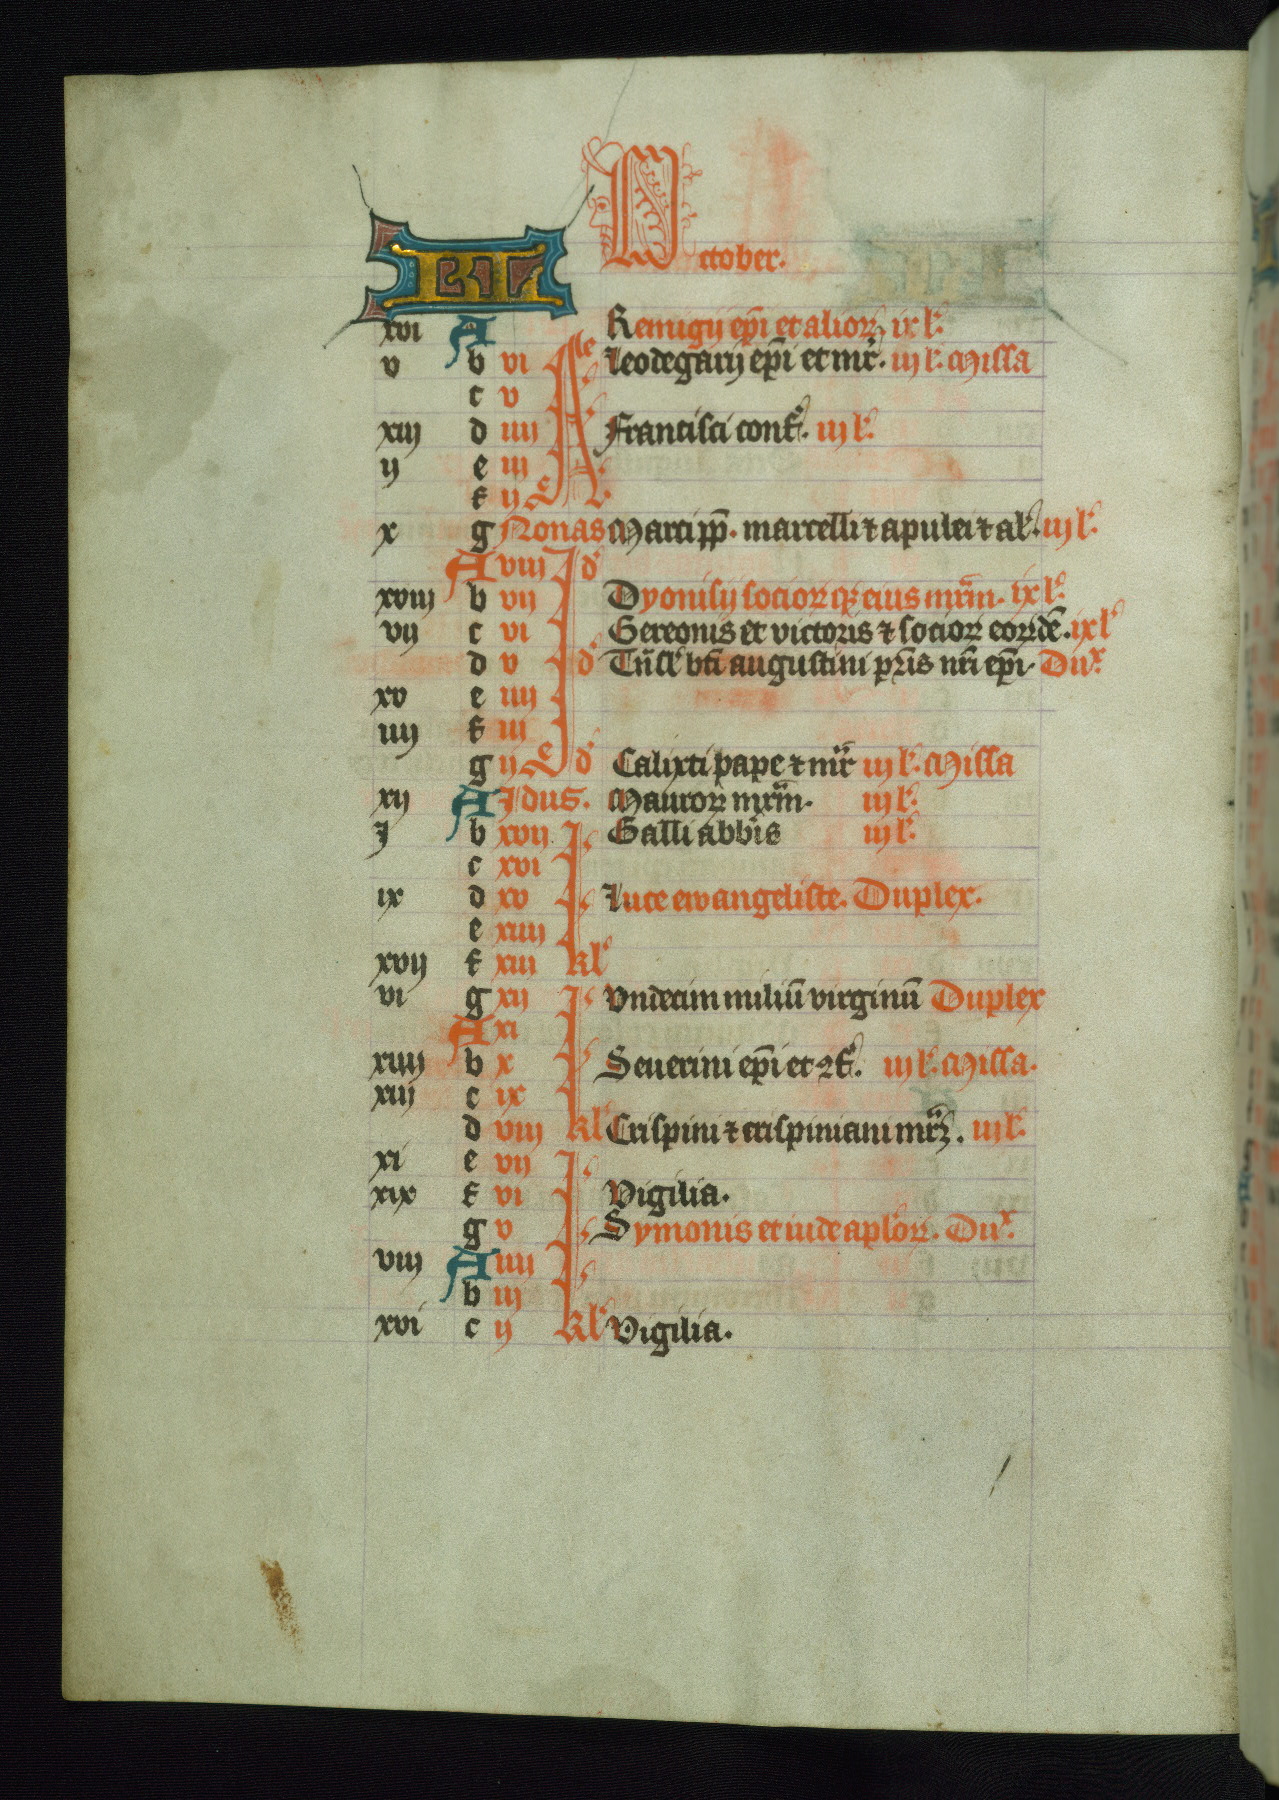 KL October.
xvi A Remigij ep̄i et alior̄ ix l̄.
v b vi Leodegarij ep̄i et mr̄. iij l̄. Missa
c v
xiij d iiij Francisci conf̄. iij l̄.
ij e iii
f ij
x g Nonas Marci pp̄. marcelli ⁊ apulei ⁊ al̄. iij l̄.
A viii Id̄
xviij b vij Dyonisij socior̄q; eius mr̄m. ix l̄.
vij c vi Gereonis et victoris ⁊ socior̄ eor̄dē. ix l̄
d v d̄ Trn̄sl̄ bt̄i augustini pr̄is nr̄i ep̄i. Dux̄
xv e iiij
iiij f iii
g ij d̄ Calixti pape ⁊ mr̄ iij l̄. Missa
xij A Idus. Mauror̄ mr̄m. iij l̄.
j b xvij Galli abb̄is iij l̄.
c xvi
ix d xv Luce ewangeliste. Duplex.
e xiiij
xvij f xiii kl̄
vi g xij Vndecim miliū virginū Duplex
A xi
xiiij b x Seuerini ep̄i et ꝯf̄. iij l̄. Missa.
xiij c ix
d viij kl̄ Crispini ⁊ crispiniani mr̄ꝫ. iij l̄.
xi e vij
xix f vi Vigilia.
g v Symonis et iude apl̄or̄. Dux̄.
viij A iiij
b iij
xvi c ij kl̄ Vigilia.